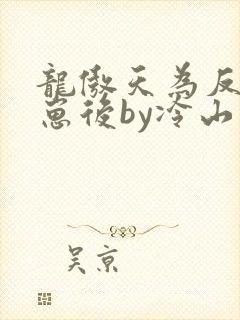 龍傲天為反
崽後by冷山
吳京